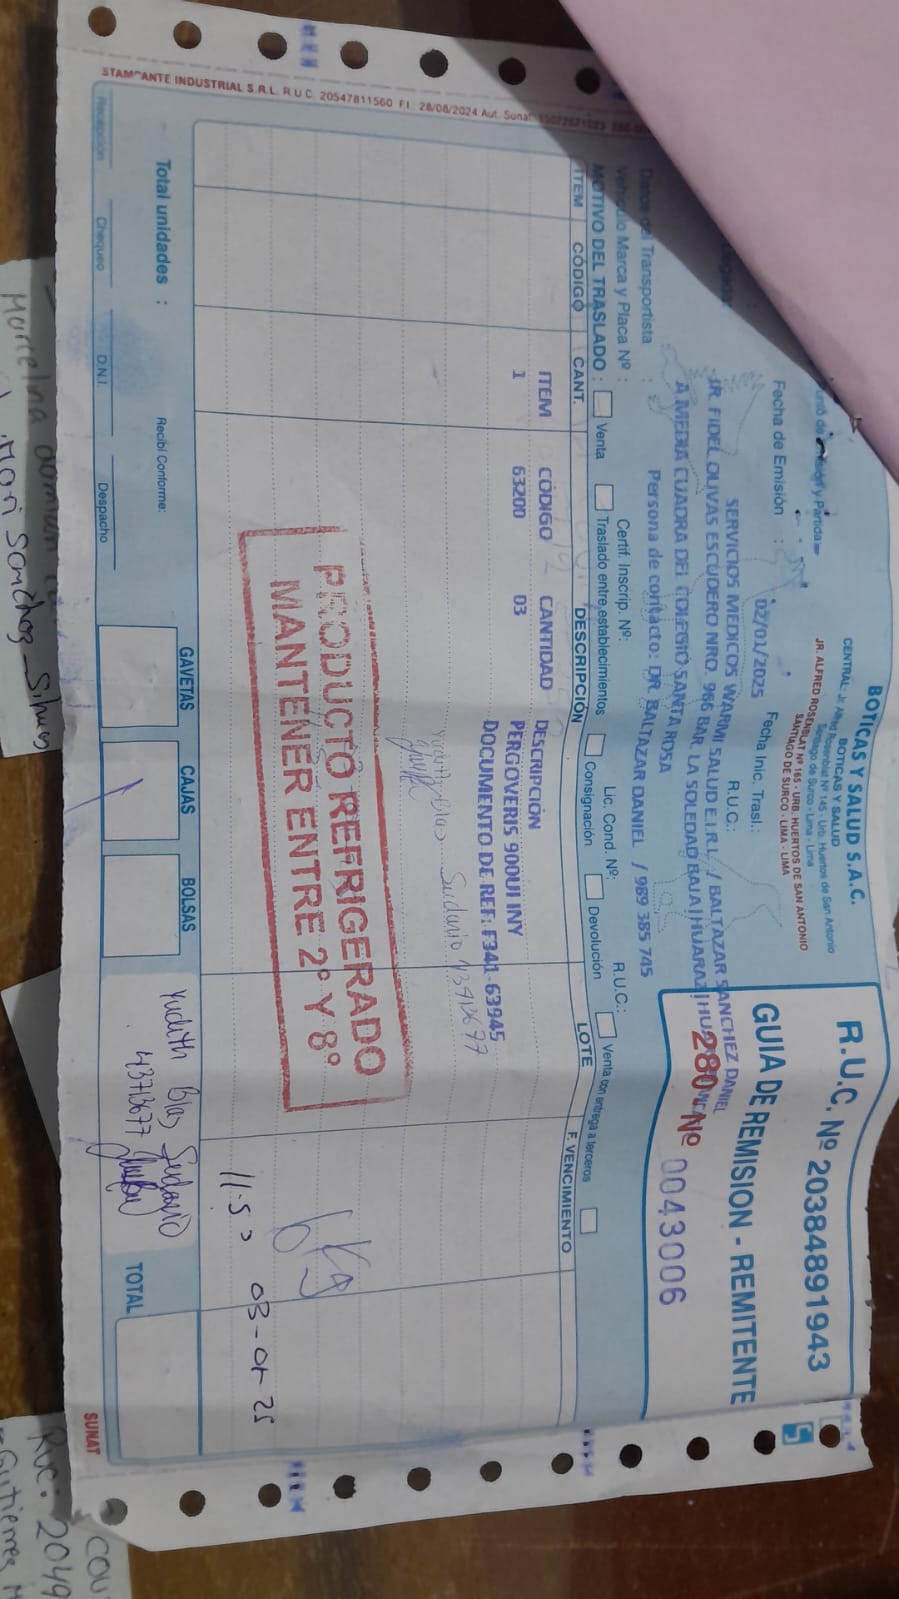 BOTICAS Y SALUD S.A.C.
BOTICAS Y SALUD
CENTRAL: Jr. Alfred Rosenblat Nº 145 - Urb. Huertos de San Antonio
Santiago de Surco - Lima - Lima
JR. ALFRED ROSENBLAT Nº 165 - URB. HUERTOS DE SAN ANTONIO
SANTIAGO DE SURCO - LIMA - LIMA
R.U.C. Nº 20384891943
GUIA DE REMISION - REMITENTE
280-Nº 0043006
y Partida
Fecha de Emisión : 02/01/2025 Fecha Inic. Trasl.:
SERVICIOS MEDICOS WARMI SALUD E.I.R.L. / BALTAZAR SANCHEZ DANIEL
R.U.C.:
JR. FIDEL OLIVAS ESCUDERO NRO. 966 BAR. LA SOLEDAD BAJA|HUARAZ|
A MEDIA CUADRA DEL COLEGIO SANTA ROSA
Persona de contacto: DR. BALTAZAR DANIEL / 989 385 745
Datos del Transportista :
R.U.C.:
Vehículo Marca y Placa Nº : Certif. Inscrip. Nº: Lic. Cond. Nº:
MOTIVO DEL TRASLADO : Venta Traslado entre establecimientos Consignación Devolución Venta con entrega a terceros
ITEM CÓDIGO CANT. DESCRIPCIÓN LOTE F. VENCIMIENTO
ITEM CÓDIGO CANTIDAD DESCRIPCIÓN
1 63200 03 PERGOVERIS 900UI INY
DOCUMENTO DE REF: F341-63945
PRODUCTO REFRIGERADO
MANTENER ENTRE 2º Y 8º
03-01-25
GAVETAS CAJAS BOLSAS
Total unidades :
Recibí Conforme:
Yudith Blas
TOTAL
Recepción Chequeo D.N.I. Despacho
STAMPANTE INDUSTRIAL S.R.L. R.U.C. 20547811560 F.I. 28/08/2024 Aut. Sunat
SUNAT
Marcelina
Ruc: 2049